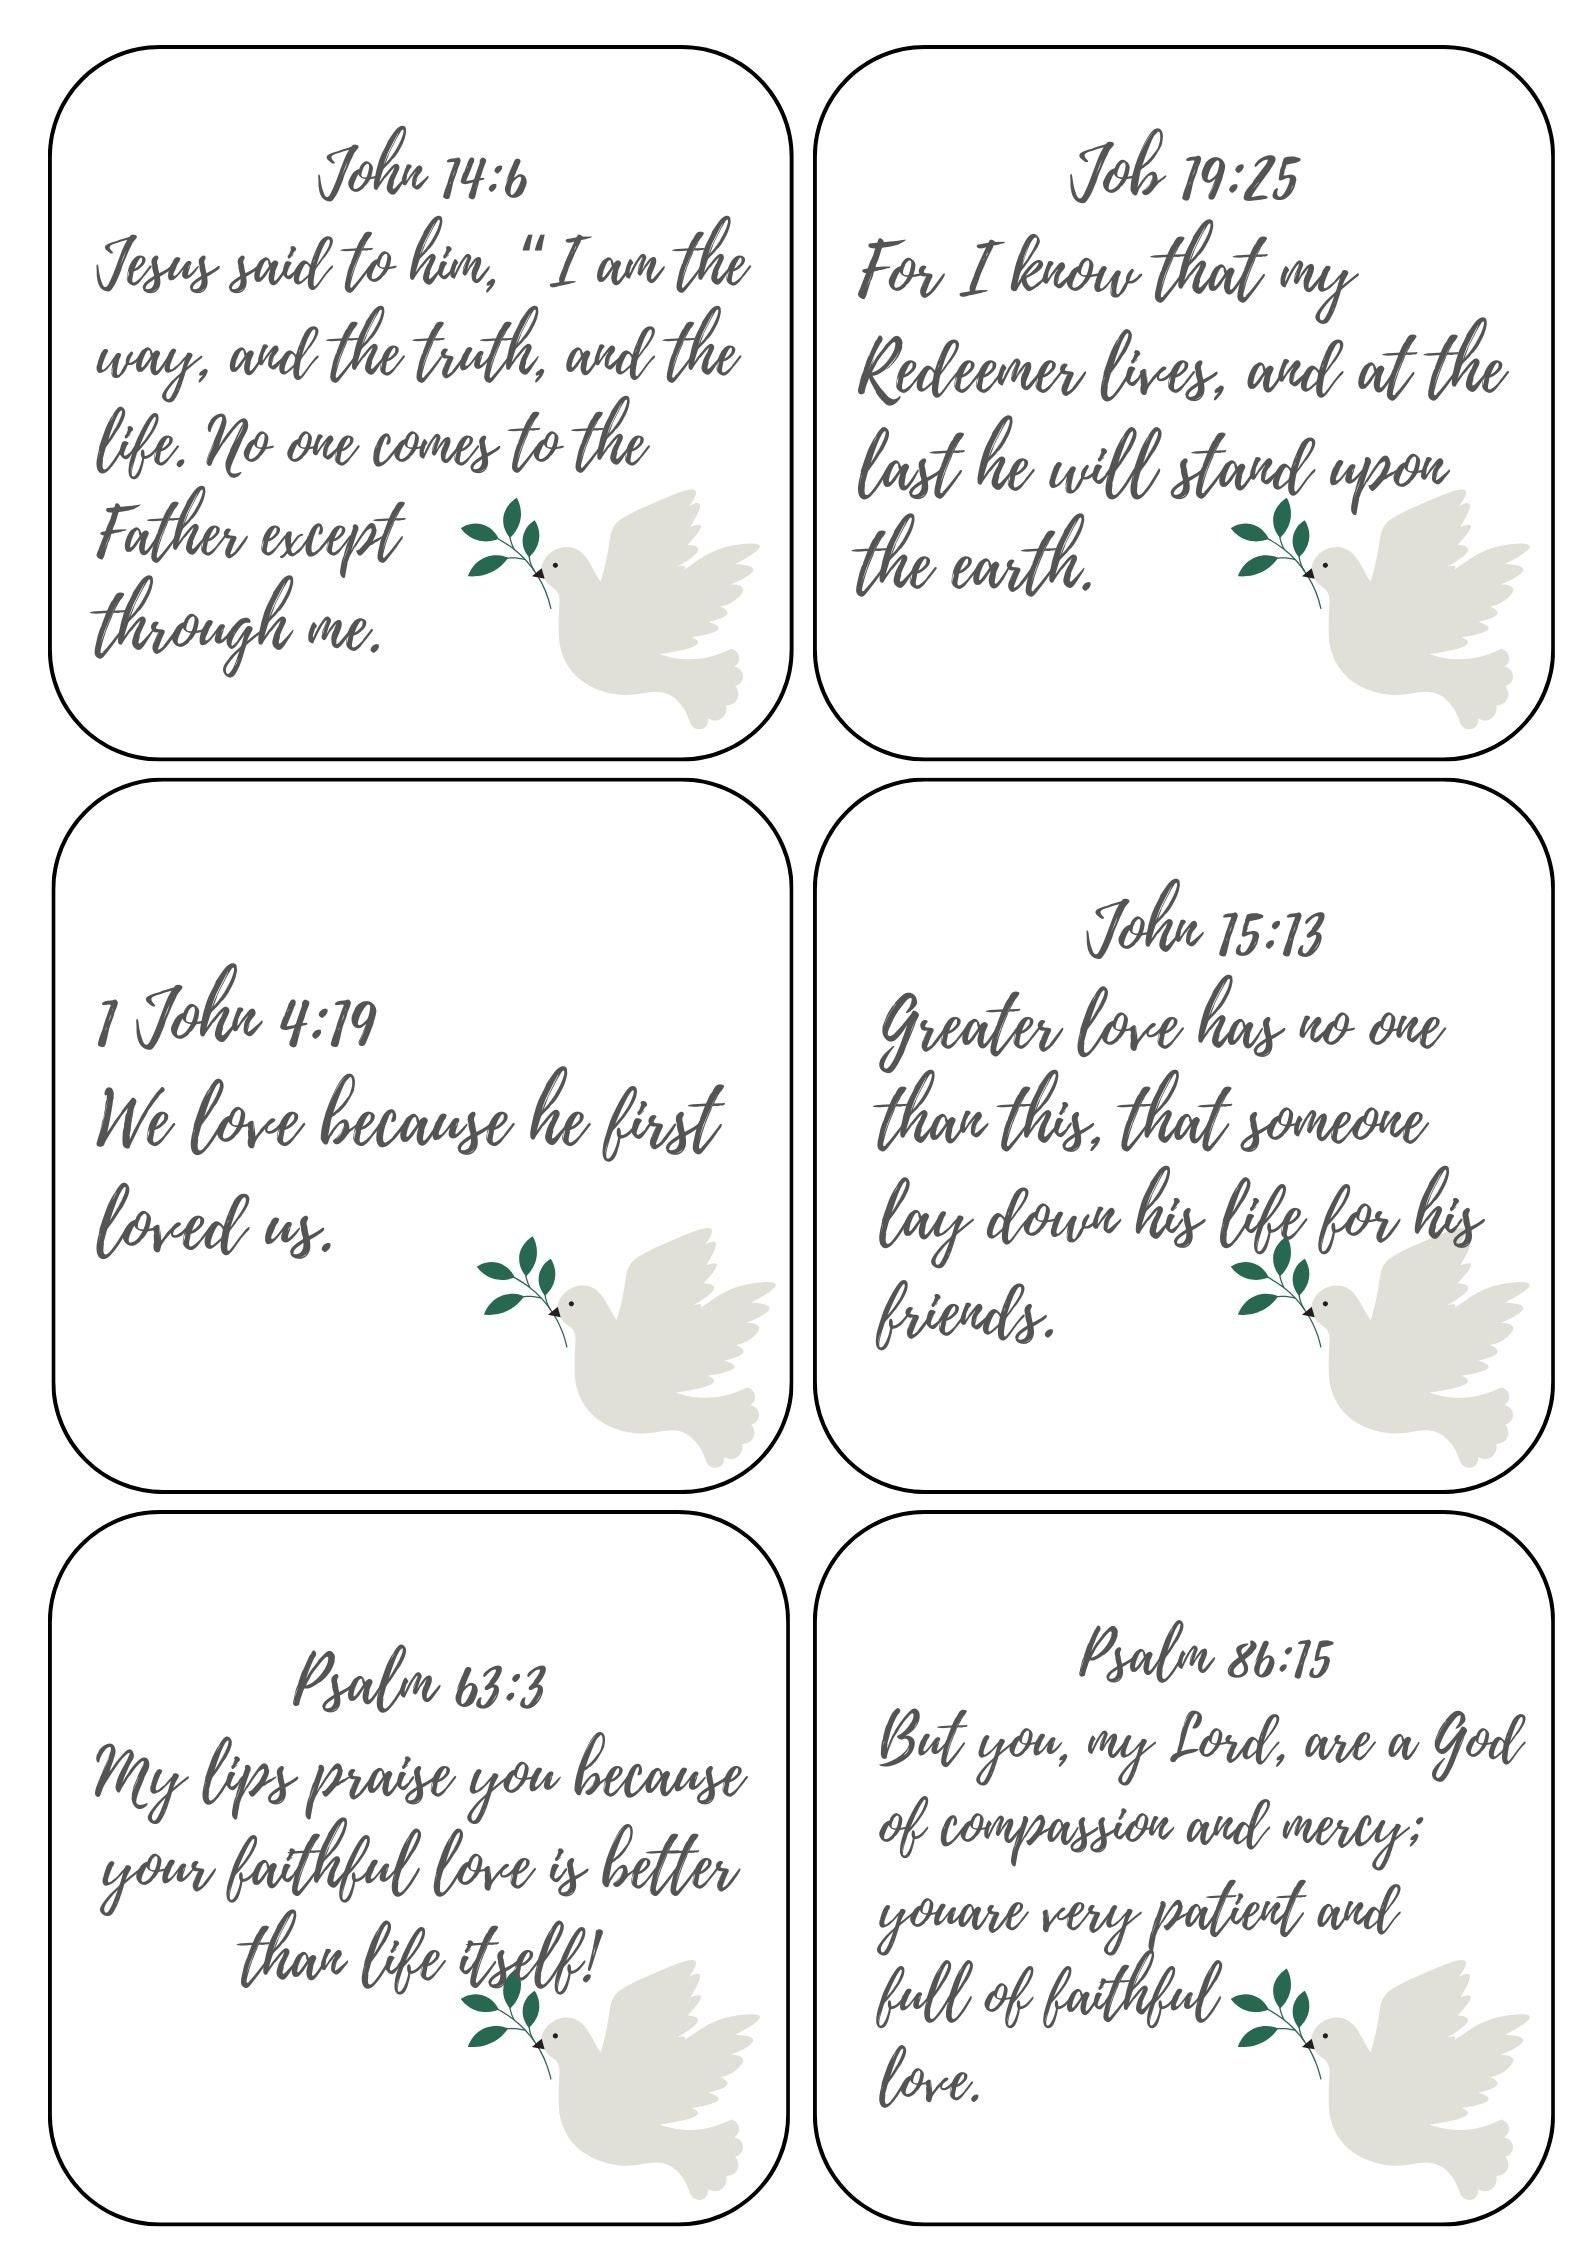 John 14:6
Jesus said to him, " I am the
way, and the truth, and the
life. No one comes to the
Father except
through me.
Job 19:25
For I know that my
Redeemer lives, and at the
last he will stand upon
the earth.
1 John 4:19
We love because he first
loved us.
John 15:13
Greater love has no one
than this, that someone
lay down his life for his
friends.
Psalm 63:3
My lips praise you because
your faithful love is better
than life itself!
Psalm 86:15
But you, my Lord, are a God
of compassion and mercy;
youare very patient and
full of faithful
love.